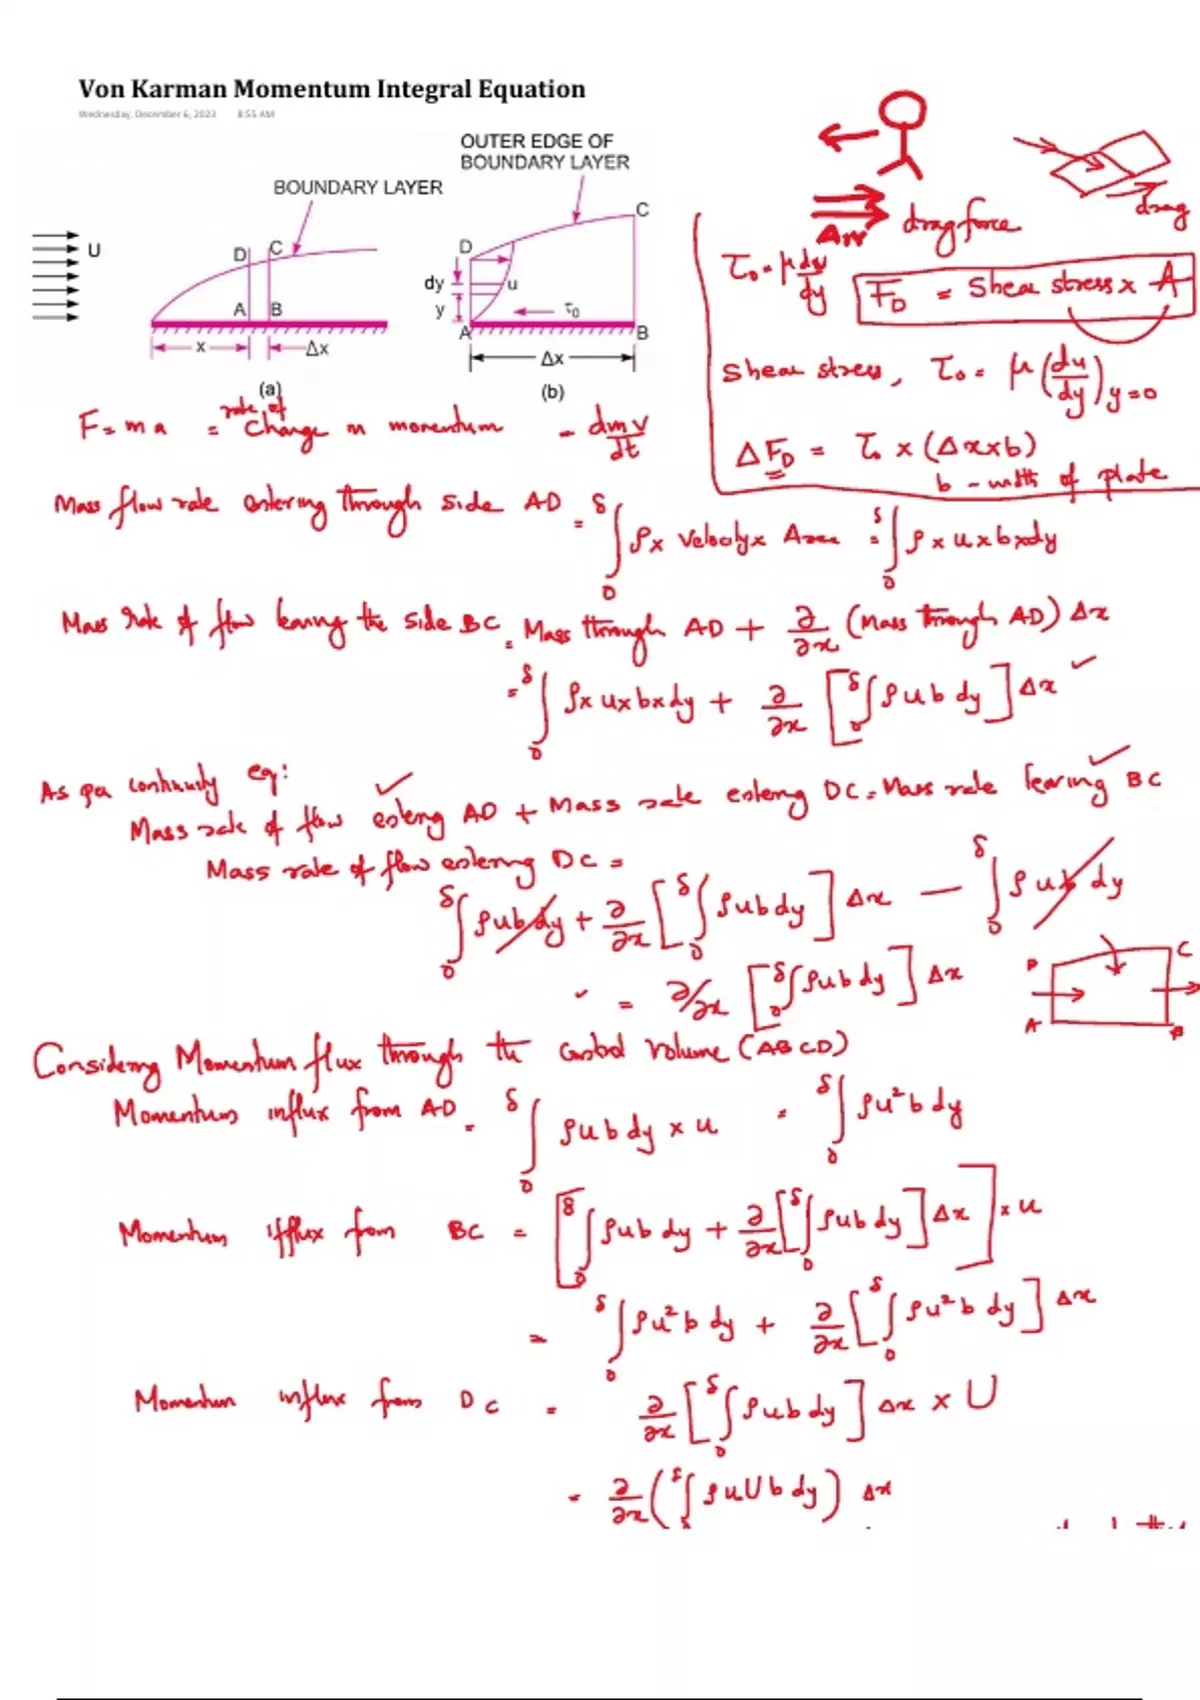 Von Karman Momentum Integral Equation
Wednesday, December 6, 2023 8:55 AM
OUTER EDGE OF
BOUNDARY LAYER
BOUNDARY LAYER
U
D C
A B
x Δx
(a)
D C
dy u
y τ0
A B
Δx
(b)
drag
Air drag force
τ0 = μ du/dy
FD = Shear stress x A
Shear stress, τ0 = μ (du/dy) y=0
ΔFD = τ0 x (Δx x b)
b - width of plate
F = m a = rate of Change in momentum = dmv/dt
Mass flow rate entering through side AD = ∫₀^δ ρ x Velocity x Area = ∫₀^δ ρ x u x b x dy
Mass rate of flow leaving the side BC = Mass through AD + ∂/∂x (Mass through AD) Δx
= ∫₀^δ ρ x u x b x dy + ∂/∂x [∫₀^δ ρ u b dy] Δx ✓
As per continuity eq:
Mass rate of flow entering AD + Mass rate entering DC = Mass rate leaving BC
Mass rate of flow entering DC =
∫₀^δ ρub dy + ∂/∂x [∫₀^δ ρub dy] Δx − ∫₀^δ ρub dy
✓ = ∂/∂x [∫₀^δ ρub dy] Δx
D C
A B
Considering Momentum flux through the Control volume (ABCD)
Momentum influx from AD = ∫₀^δ ρub dy x u = ∫₀^δ ρu²b dy
Momentum from BC = [∫₀^δ ρub dy + ∂/∂x [∫₀^δ ρub dy] Δx] x u
= ∫₀^δ ρu²b dy + ∂/∂x [∫₀^δ ρu²b dy] Δx
Momentum influx from DC = ∂/∂x [∫₀^δ ρub dy] Δx x U
= ∂/∂x (∫₀^δ ρuUb dy) Δx